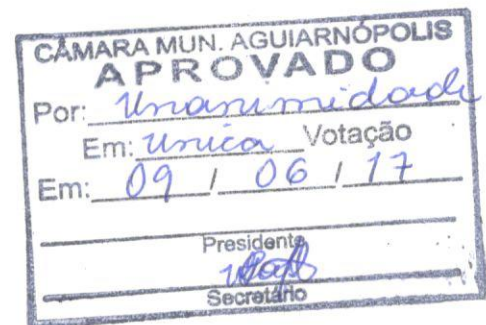 CÂMARA MUN. AGUIARNÓPOLIS
APROVADO
Por: Unanimidade
Em: Unica Votação
Em: 09 / 06 / 17
Presidente
Secretário